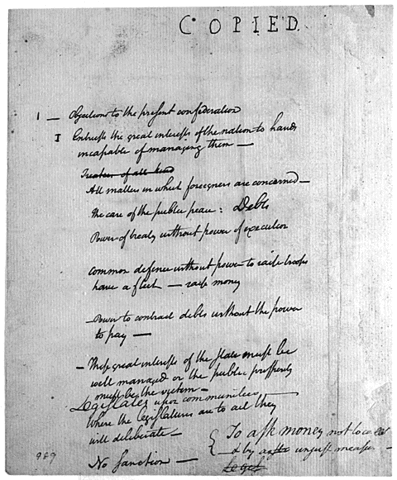 COPIED.
1 — Objections to the present confederation
I Entrusts the great interests of the nation to hands
incapable of managing them —
Treaties of all kind
All matters in which foreigners are concerned —
The care of the public peace: Debts
Power of treaty without power of execution
common defence without power to raise troops
have a fleet — raise money
— Power to contract debts without the power
to pay —
— These great interests of the state must be
well managed or the public prosperity
must be the victim —
Legislates upon communities —
Where the legislatures are to act they
will deliberate —
To ask money not to collect
d by unjust measure
No sanction —
989